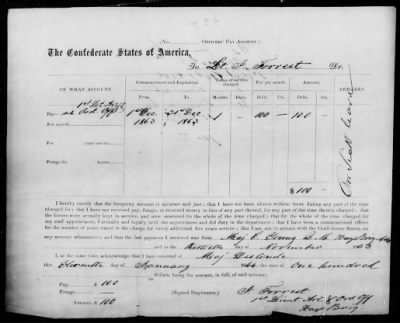 (No. ) OFFICERS' PAY ACCOUNT.
The Confederate States of America,
To Lt J. Forrest Dr.
ON WHAT ACCOUNT.
Commencement and Expiration.
Term of service charged.
Pay per month.
Amount.
DOLLARS
From To Months. Days. Dolls. Cts. Dolls. Cts.
1st Lt Art &
Pay— as Ord Off
1st Dec. 31st Dec 1 — 100 — 100 —
For myself 1863 1863
For
(years' service
Forage for horses
$ 100 —
I hereby certify that the foregoing account is accurate and just; that I have not been absent without leave during any part of the
time charged for; that I have not received pay, forage, or received money in lieu of any part thereof, for any part of the time therein charged; that
the horses were actually kept in service, and were mustered for the whole of the time charged; that for the whole of the time charged for my
staff appointment, I actually and legally held the appointment and did duty in the department; that I have been a commissioned officer
for the number of years stated in the charge for every additional five years' service; that I am not in arrears with the Confederate States, on
any account whatsoever; and that the last payment I received was from Maj C. Young
and to the day of November 1863
I, at the same time, acknowledge that I have received of Maj
this Eleventh day of January 1864, the sum of One hundred
dollars, being the amount, in full, of said account.
Pay $ 100
Forage
Amount $ 100
(Signed Duplicates.) J. Forrest
1st Lieut Art & Ord Off